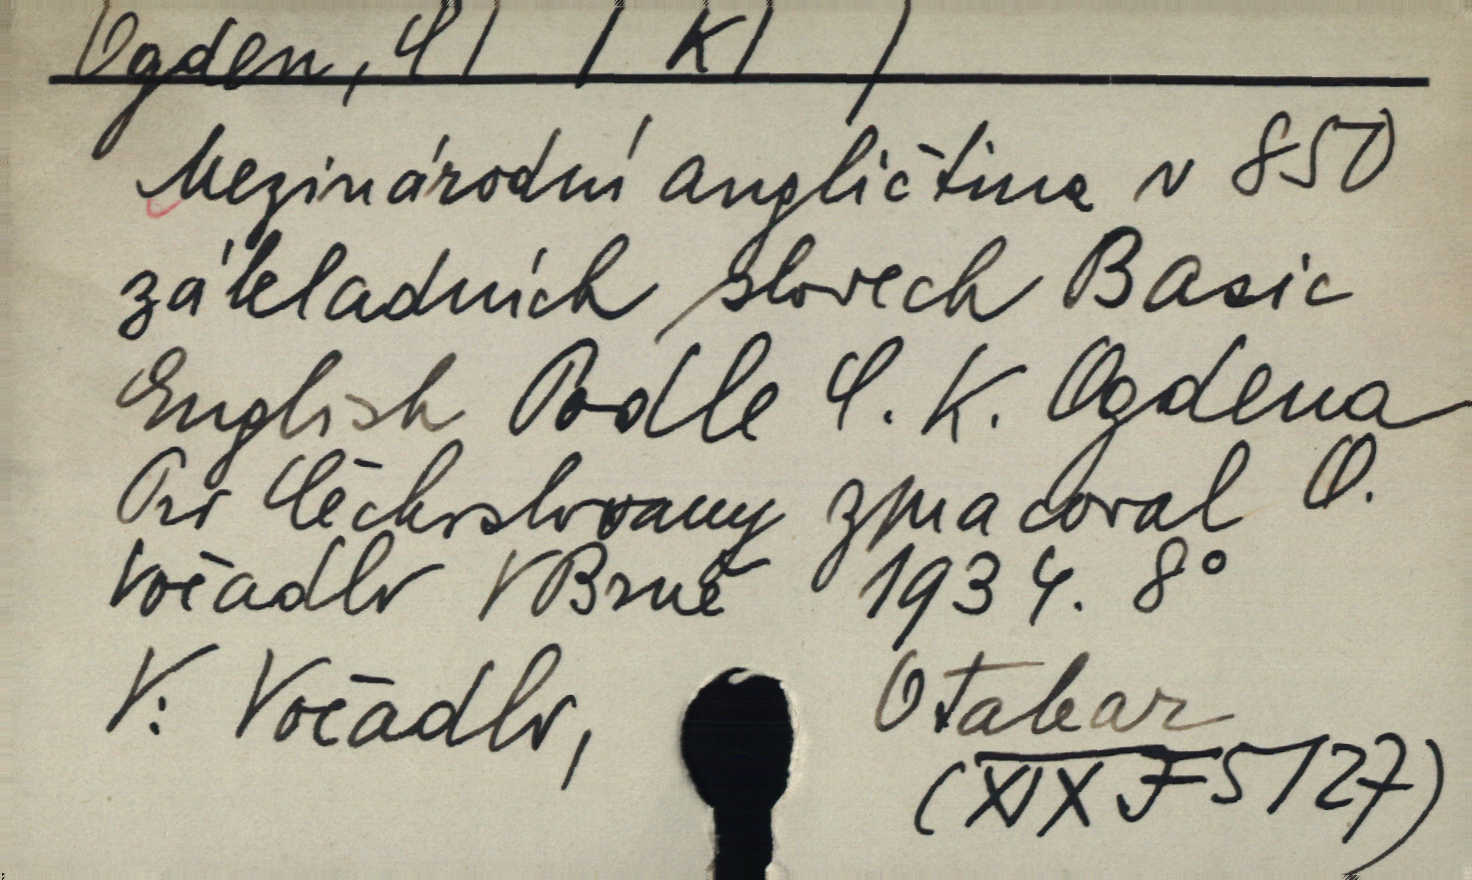 Ogden, C( ) K( )
Mezinárodní angličtina v 850
základních slovech Basic
English Podle C. K. Ogdena
Pro Čechoslovany zpracoval O.
Vočadlo V Brně 1934. 8°
V: Vočadlo, Otakar
(XIX F 5127)